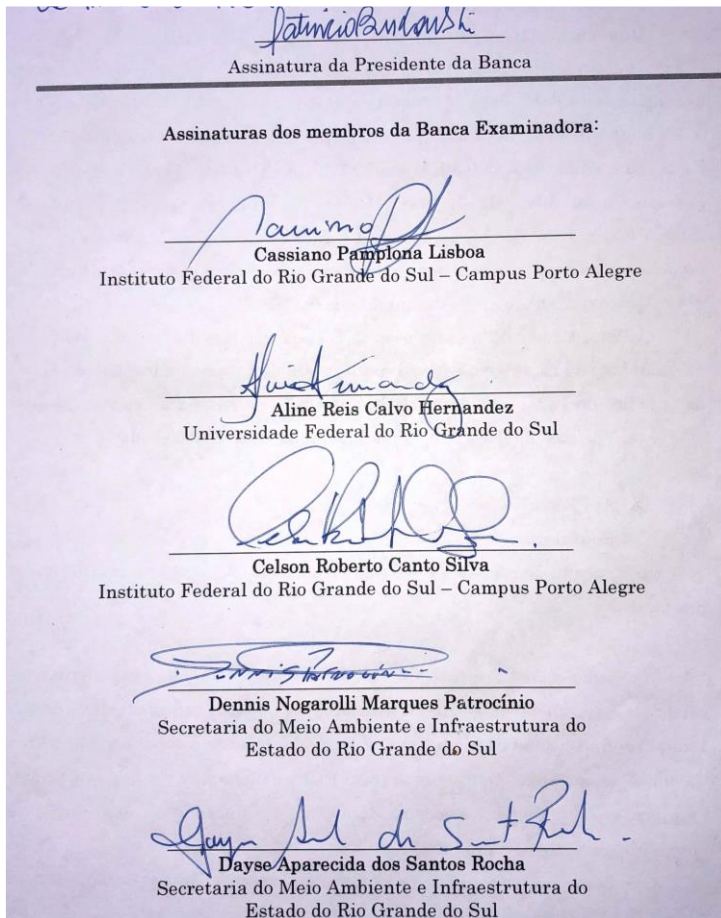 Assinatura da Presidente da Banca
Assinaturas dos membros da Banca Examinadora:
Cassiano Pamplona Lisboa
Instituto Federal do Rio Grande do Sul – Campus Porto Alegre
Aline Reis Calvo Hernandez
Universidade Federal do Rio Grande do Sul
Celson Roberto Canto Silva
Instituto Federal do Rio Grande do Sul – Campus Porto Alegre
Dennis Patrocínio
Dennis Nogarolli Marques Patrocínio
Secretaria do Meio Ambiente e Infraestrutura do
Estado do Rio Grande do Sul
Dayse Aparecida dos Santos Rocha
Secretaria do Meio Ambiente e Infraestrutura do
Estado do Rio Grande do Sul